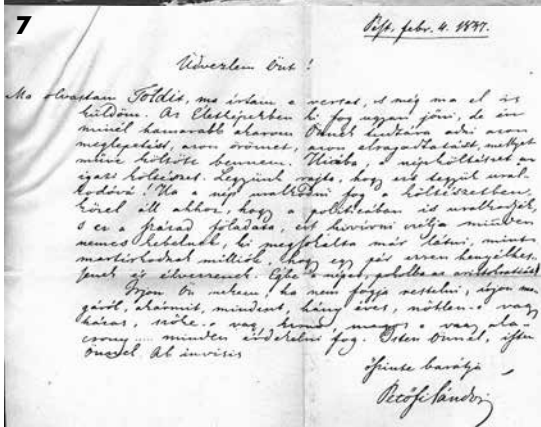 7
Pest, febr. 4. 1847.
Üdvezlem Önt!
Ma olvastam Toldit, ma írtam e verset, s még ma el is
küldöm. Az Életképekben ki fog ugyan jőni, de én
minél hamarabb akarom Önnek tudtára adni azon
meglepetést, azon örömet, azon elragadtatást, mellyet
műve költött bennem. Hiába, a népköltészet az
igazi költészet. Legyünk rajta, hogy ezt tegyük ural-
kodóvá! Ha a nép uralkodni fog a költészetben,
közel áll ahhoz, hogy a politicában is uralkodjék,
s ez a század föladata, ezt kivívni célja minden
nemes kebelnek, ki megsokalta már látni, mint
martírkodnak milliók, hogy egy pár ezren henyélhes-
senek és élvezzenek. Égbe a népet, pokolba az aristokratiát!
Írjon Ön nekem, ha nem fogja restelni, írjon ma-
gáról, akármit, mindent, hány éves, nőtlen-e vagy
házas, szőke-e vagy barna, magas-e vagy ala-
csony .... minden érdekelni fog. Isten Önnel, isten
Önnel. Ab invisis
őszinte barátja
Petőfi Sándor